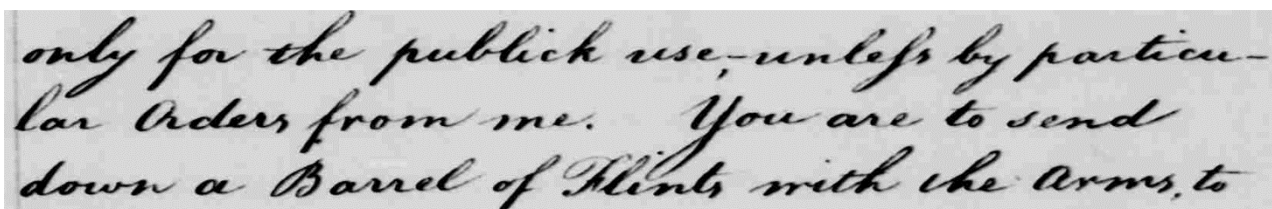 only for the publick use, - unleſs by particu-
lar Orders from me. You are to send
down a Barrel of Flints with the Arms, to